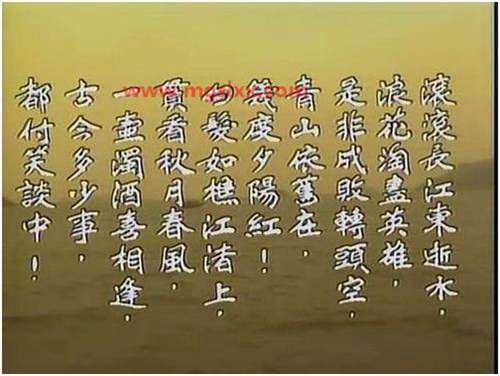 滾滾長江東逝水，
浪花淘盡英雄，
是非成敗轉頭空，
青山依舊在，
幾度夕陽紅！
白髮如樵江渚上，
貫看秋月春風，
一壺濁酒喜相逢，
古今多少事，
都付笑談中！